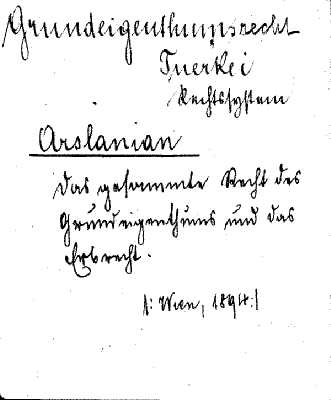 Grundeigenthumsrecht
Tuerkei
Rechtssystem
Arslanian
Das gesammte Recht des
Grundeigenthums und das
Erbrecht.
/: Wien, 1894 :/